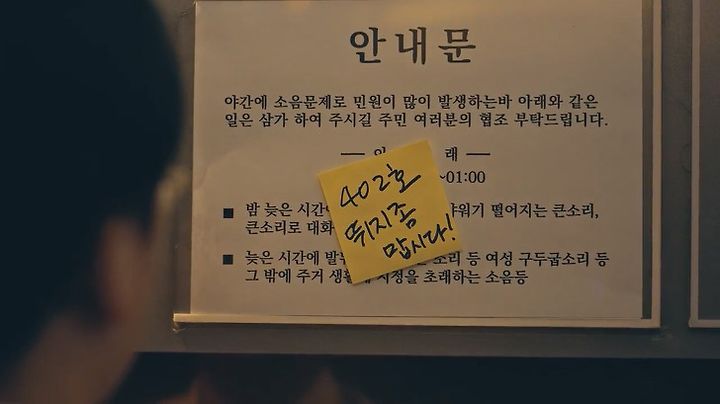 안내문
야간에 소음문제로 민원이 많이 발생하는바 아래와 같은
일은 삼가 하여 주시길 주민 여러분의 협조 부탁드립니다.
래
~01:00
402호
뛰지좀
맙시다!
■ 밤 늦은 시간 떨어지는 큰소리,
큰소리로 대화
■ 늦은 시간에 소리 등 여성 구두굽소리 등
그 밖에 주거 지장을 초래하는 소음등